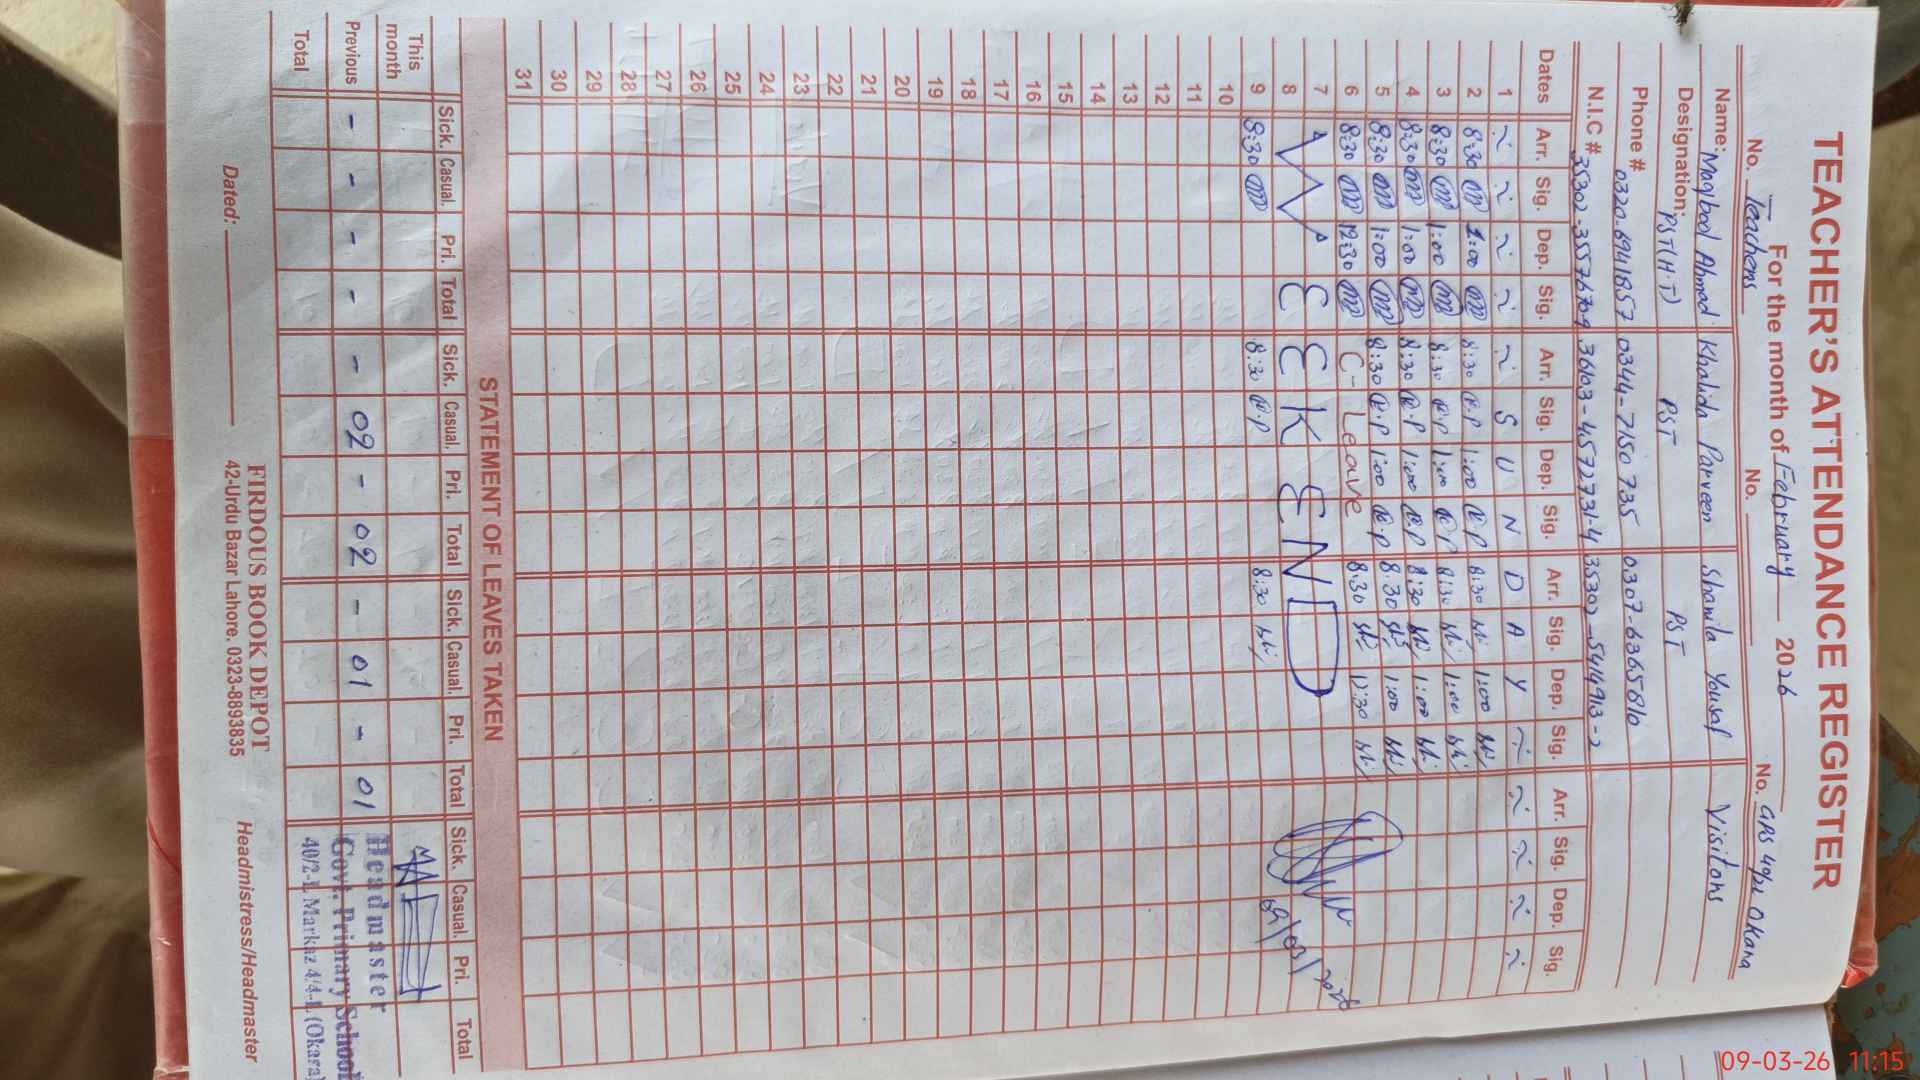 TEACHER'S ATTENDANCE REGISTER
For the month of February 2026
No. Teachers No. No. GPS 40/2L Okara
Name: Maqbool Ahmad Khalida Parveen Shamila Yousaf Visitors
Designation: PST(H.T) PST PST
Phone # 0320.6941857 0344-7150735 0307-6365816
N.I.C #
Dates Arr. Sig. Dep. Sig. Arr. Sig. Dep. Sig. Arr. Sig. Dep. Sig. Arr. Sig. Dep. Sig.
1 S U N D A Y
2 8:30 1:00 8:30 K.P 1:00 K.P 8:30 1:00
3 8:30 1:00 8:30 K.P 1:00 K.P 8:30 1:00
4 8:30 1:00 8:30 K.P 1:00 K.P 8:30 1:00
5 8:30 1:00 8:30 K.P 1:00 K.P 8:30 1:00
6 8:30 12:30 C-Leave 8:30 12:30
7
8 W E E K E N D
9 8:30 8:30 K.P 8:30
09/03/2026
10
11
12
13
14
15
16
17
18
19
20
21
22
23
24
25
26
27
28
29
30
31
STATEMENT OF LEAVES TAKEN
Sick. Casual. Pri. Total Sick. Casual. Pri. Total Sick. Casual. Pri. Total Sick. Casual. Pri. Total
This month
Previous - - - - - 02 - 02 - 01 - 01
Total
Headmaster
Govt. Primary School
40/2-L Markaz 4/4-L (Okara)
Dated: Headmistress/Headmaster
FIRDOUS BOOK DEPOT
42-Urdu Bazar Lahore. 0323-8893835
09-03-26 11:15